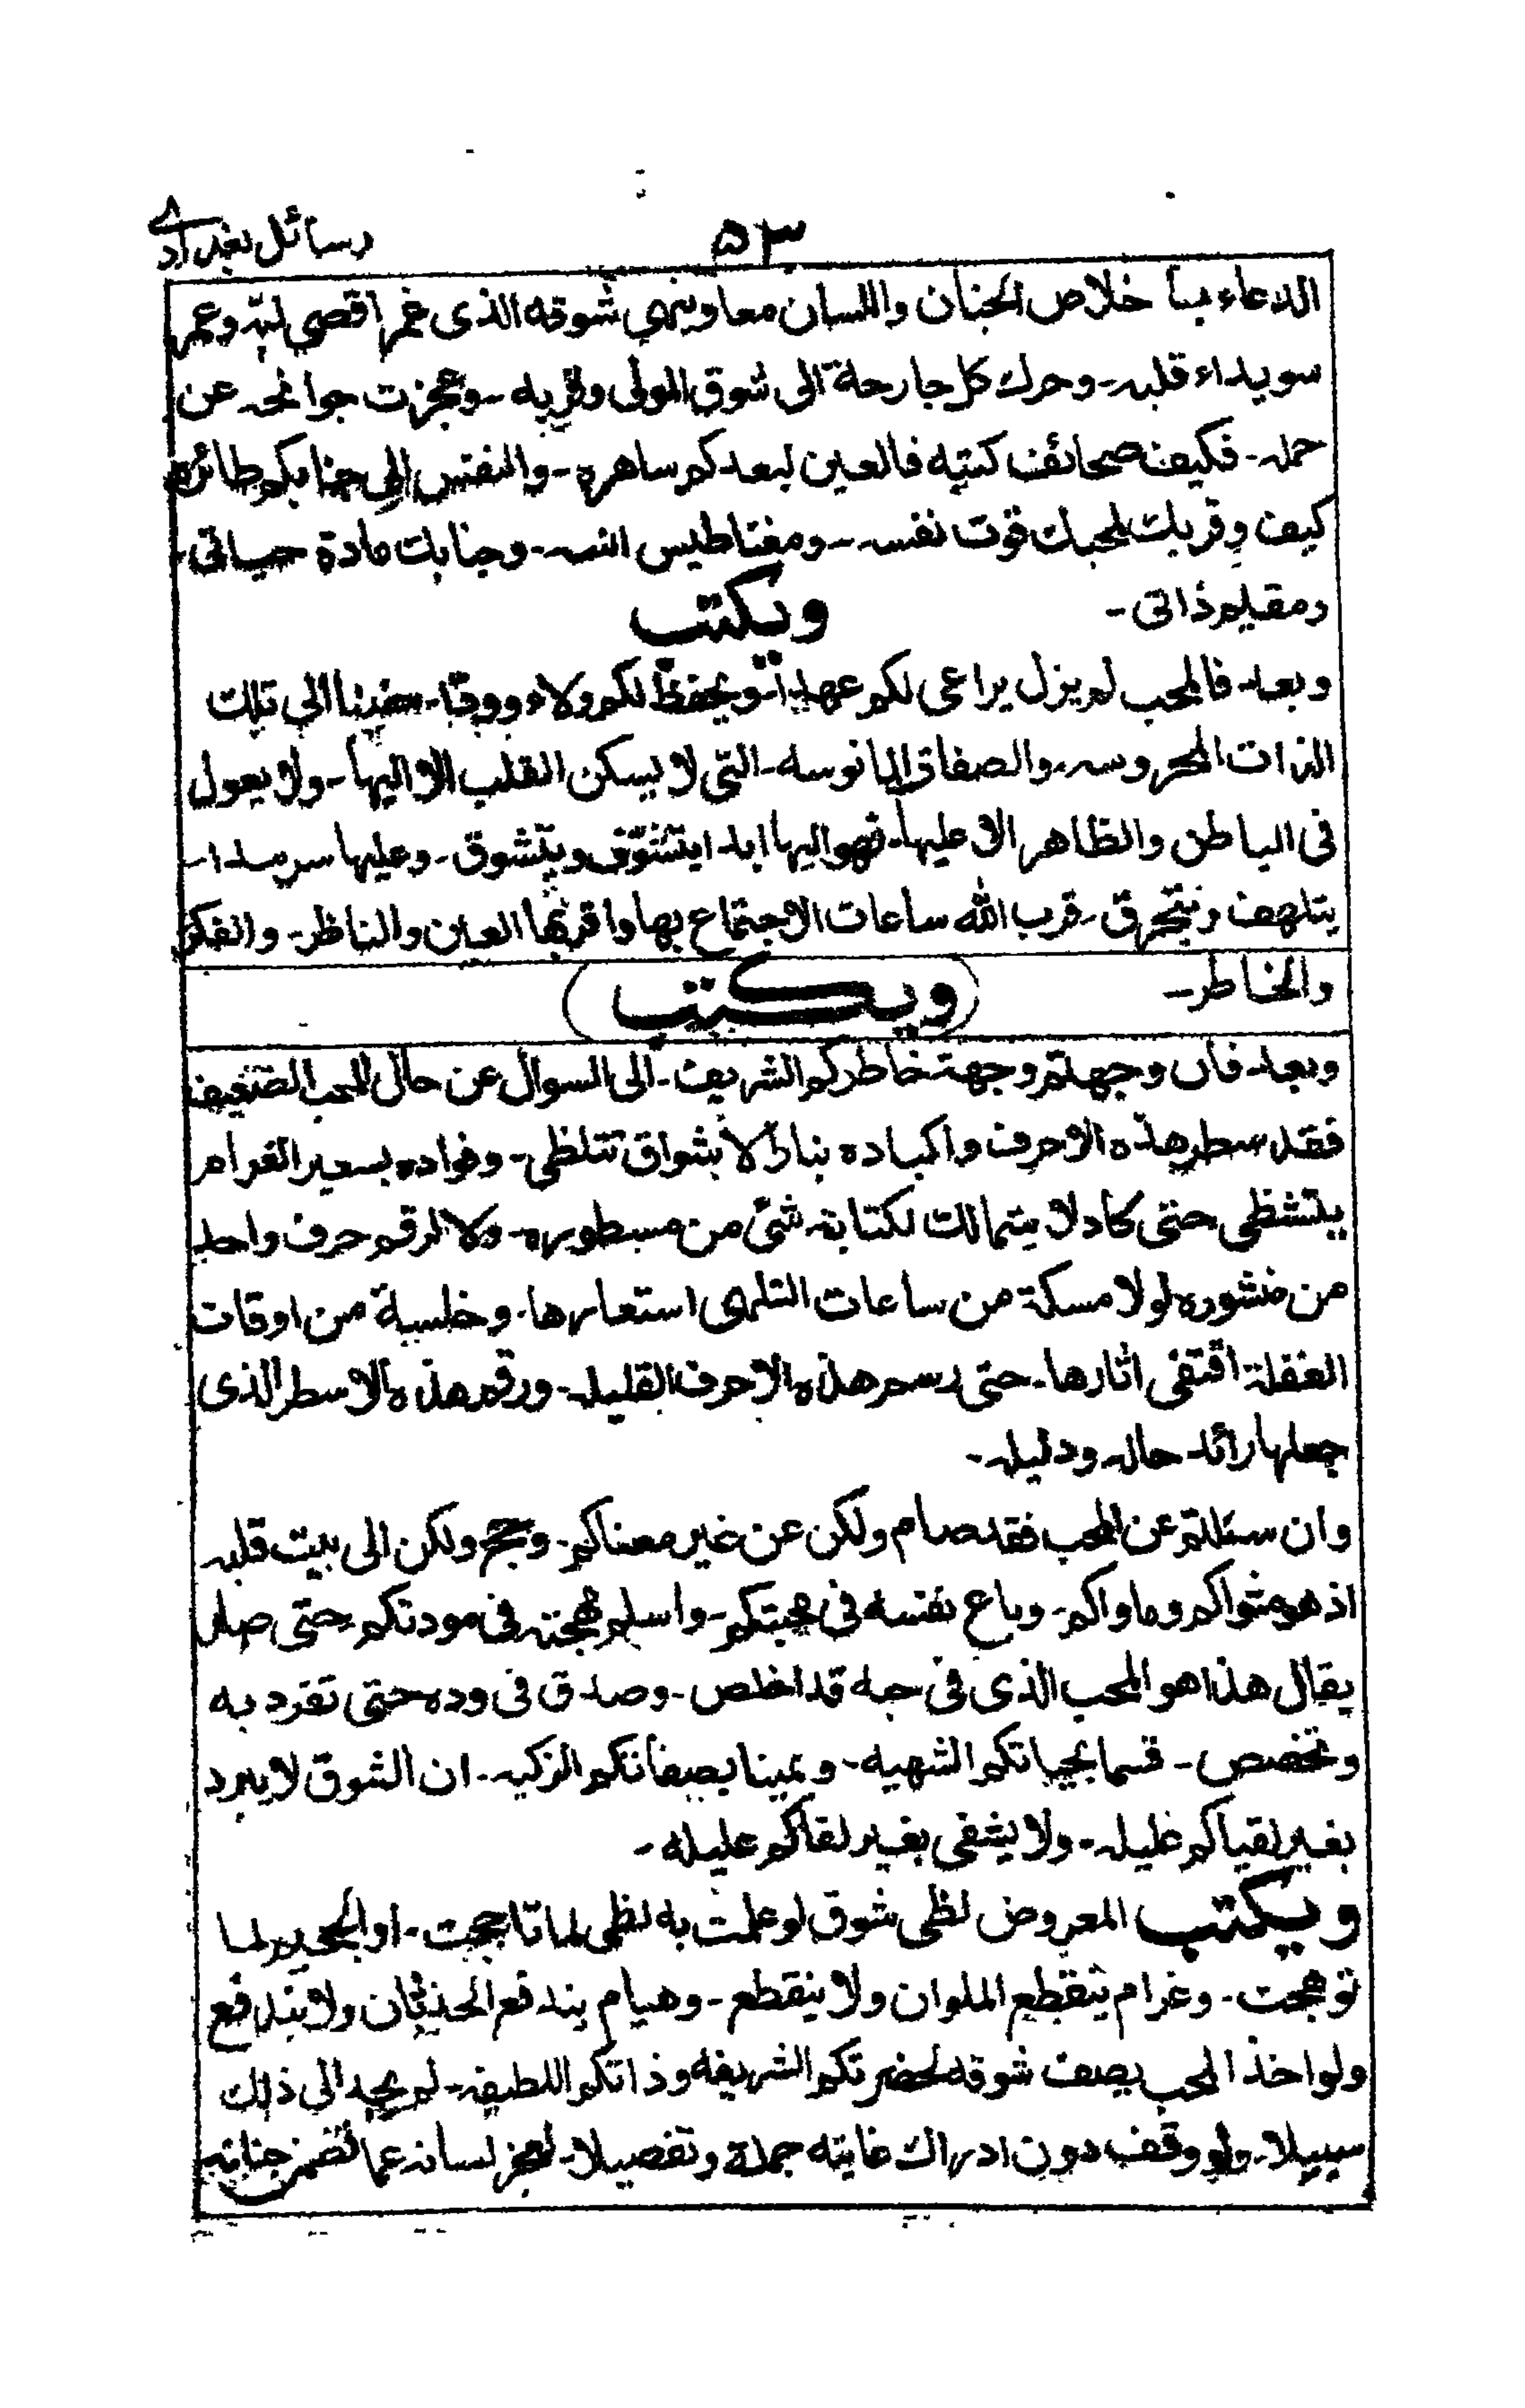 رسائل بغدادی
۵۳
الدعاء باخلاص الجنان واللسان معاوینهی شوقه الذی غمر اقصی لبه وعمر
سویداء قلبه - وحرك كل جارحة الی شوق المولی وقربه - وعجزت جوانحه عن
حمله - فكیف صحائف كتبه فالعین لبعدكم ساهره - والنفس الی جنابكم طائره
كیف وقربك لمحبك قوت نفسه - ومغناطیس انسه - وجنابك مادة حیاتی -
ومقیلم ذاتی -
ویكتب
وبعد - فالمحب لم یزل یراعی لكم عهدا - ویحفظ لكم ولاء وودا - حنینا الی تلك
الذات المحروسه - والصفات المانوسه - التی لا یسكن القلب الا الیها - ولا یعول
فی الباطن والظاهر الا علیها - فهو الیها ابدا یتشوف ویتشوق - وعلیها سرمدا -
یتلهف ویتحرق - قرب الله ساعات الاجتماع بها واقر بها العین والناظر - والفكر
والخاطر -
(ویكتب)
وبعد - فان وجهتم وجهة خاطركم الشریف - الی السوال عن حال المحب الضعیف
فقد سطر هذه الاحرف واكباده بنار الاشواق تتلظی - وفواده بسعیر الغرام
یتشظی حتی كاد لا یتمالك لكتابة شئ من مسطوره - ولا لرقم حرف واحد
من منشوره لولا مسكة من ساعات التلهی استعارها - وخلسة من اوقات
الغفلة اقتفی اثارها - حتی رسم هذه الاحرف القلیله - ورقم هذه الاسطر الذی
جعلها رائد حاله ودلیله -
وان سئلتم عن المحب فقد صام ولكن عن غیر معناكم - وحج ولكن الی بیت قلبه
اذ هو مثواكم وماواكم - وباع نفسه فی محبتكم - واسلم مهجته فی مودتكم حتی صار
یقال هذا هو المحب الذی فی حبه قد اخلص - وصدق فی وده حتی تفرد به
وتخصص - قسما بحیاتكم الشهیه - ویمینا بصفاتكم الزكیه - ان الشوق لا یبرد
بغیر لقیاكم غلیله - ولا یشفی بغیر لقاكم علیله -
ویكتب المعروض لظی شوق لو علمت به لظی لما تاججت - او الجحیم لما
توهجت - وغرام ینقطع الملوان ولا ینقطع - وهیام یندفع الحدثان ولا یندفع
ولو اخذ المحب یصف شوقه لحضرتكم الشریفه وذاتكم اللطیفه - لم یجد الی ذلك
سبیلا - ولو وقف دون ادراك غایته جملة وتفصیلا - لعجز لسانه عما تضمر جنانه